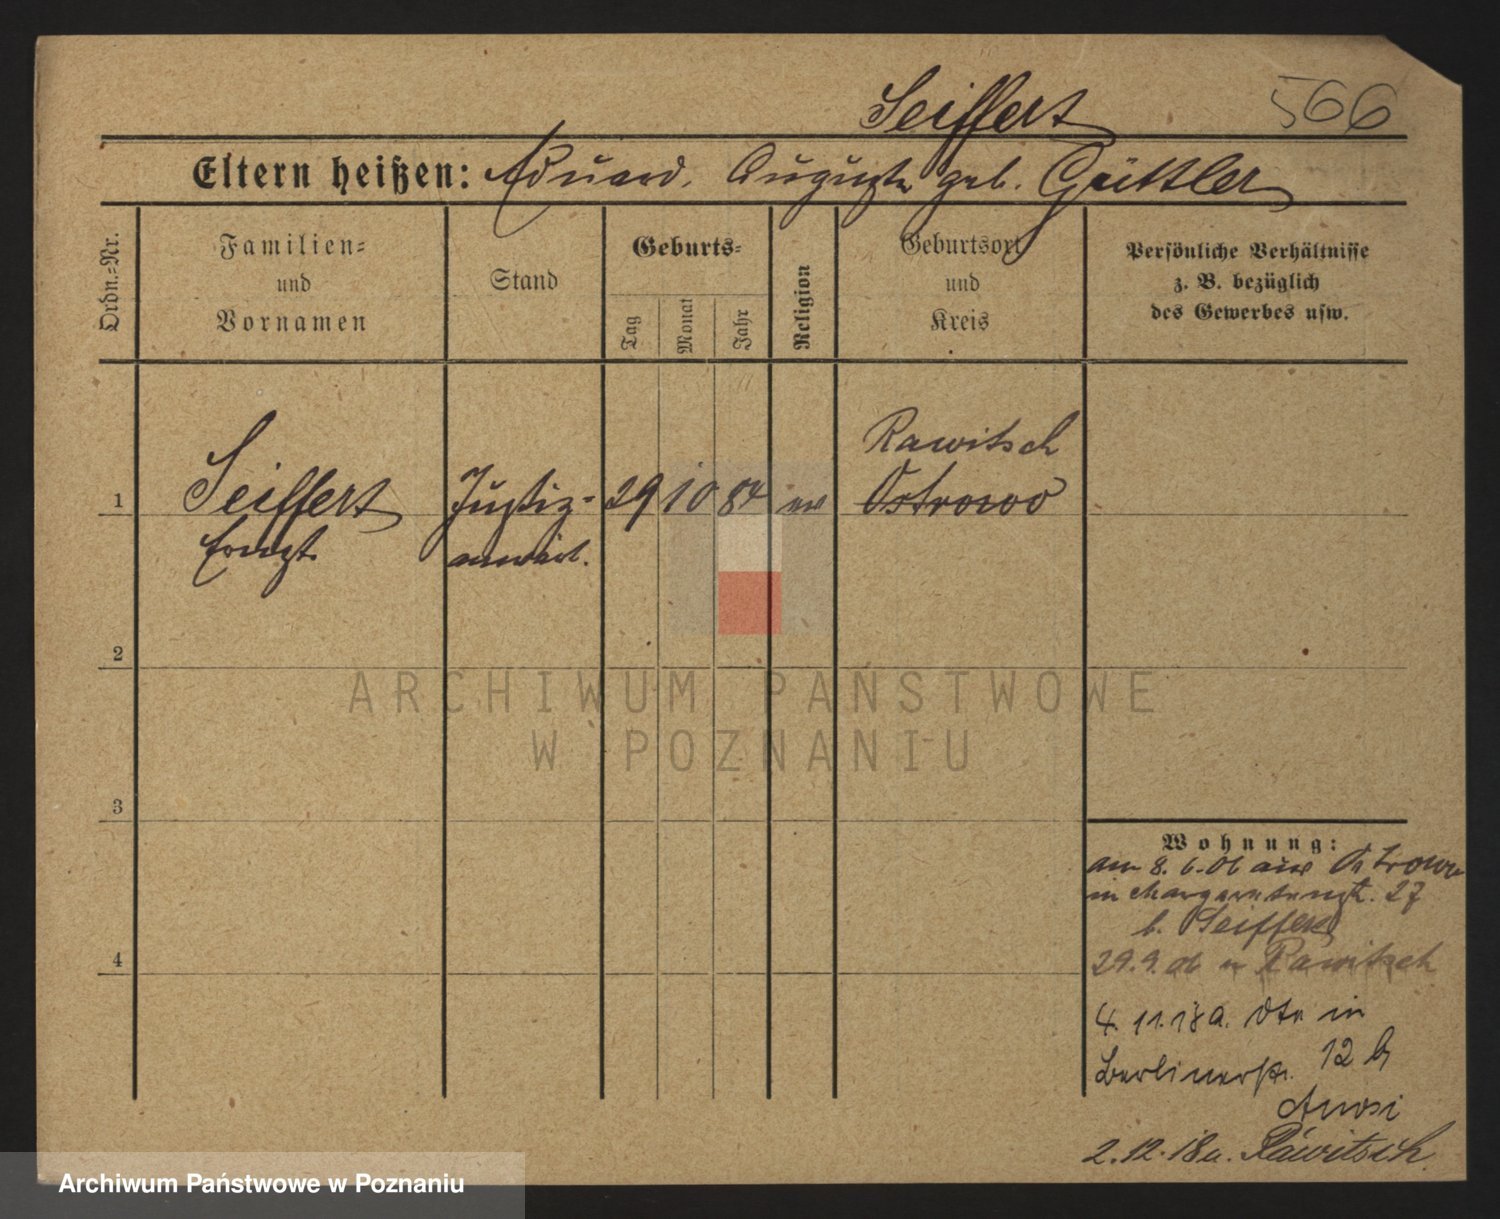 Seiffert 566
Eltern heißen: Eduard. Auguste geb. Güttler
Ordn.=Nr.
Familien=
und
Vornamen
Stand
Geburts=
Tag
Monat
Jahr
Religion
Geburtsort
und
Kreis
Persönliche Verhältnisse
z. B. bezüglich
des Gewerbes usw.
1
Seiffert
Ernst
Justiz=
anwärt.
29 10 84 ev
Rawitsch
Ostrowo
2
3
4
Wohnung:
am 8.6.06 aus Ostrowo
in Margaretenstr. 27
b. Seiffert
29.9.06 n Rawitsch
4.11.18 a. in
Berlinerstr. 12 b
2.12.18 n. Rawitsch
ARCHIWUM PAŃSTWOWE
W POZNANIU
Archiwum Państwowe w Poznaniu